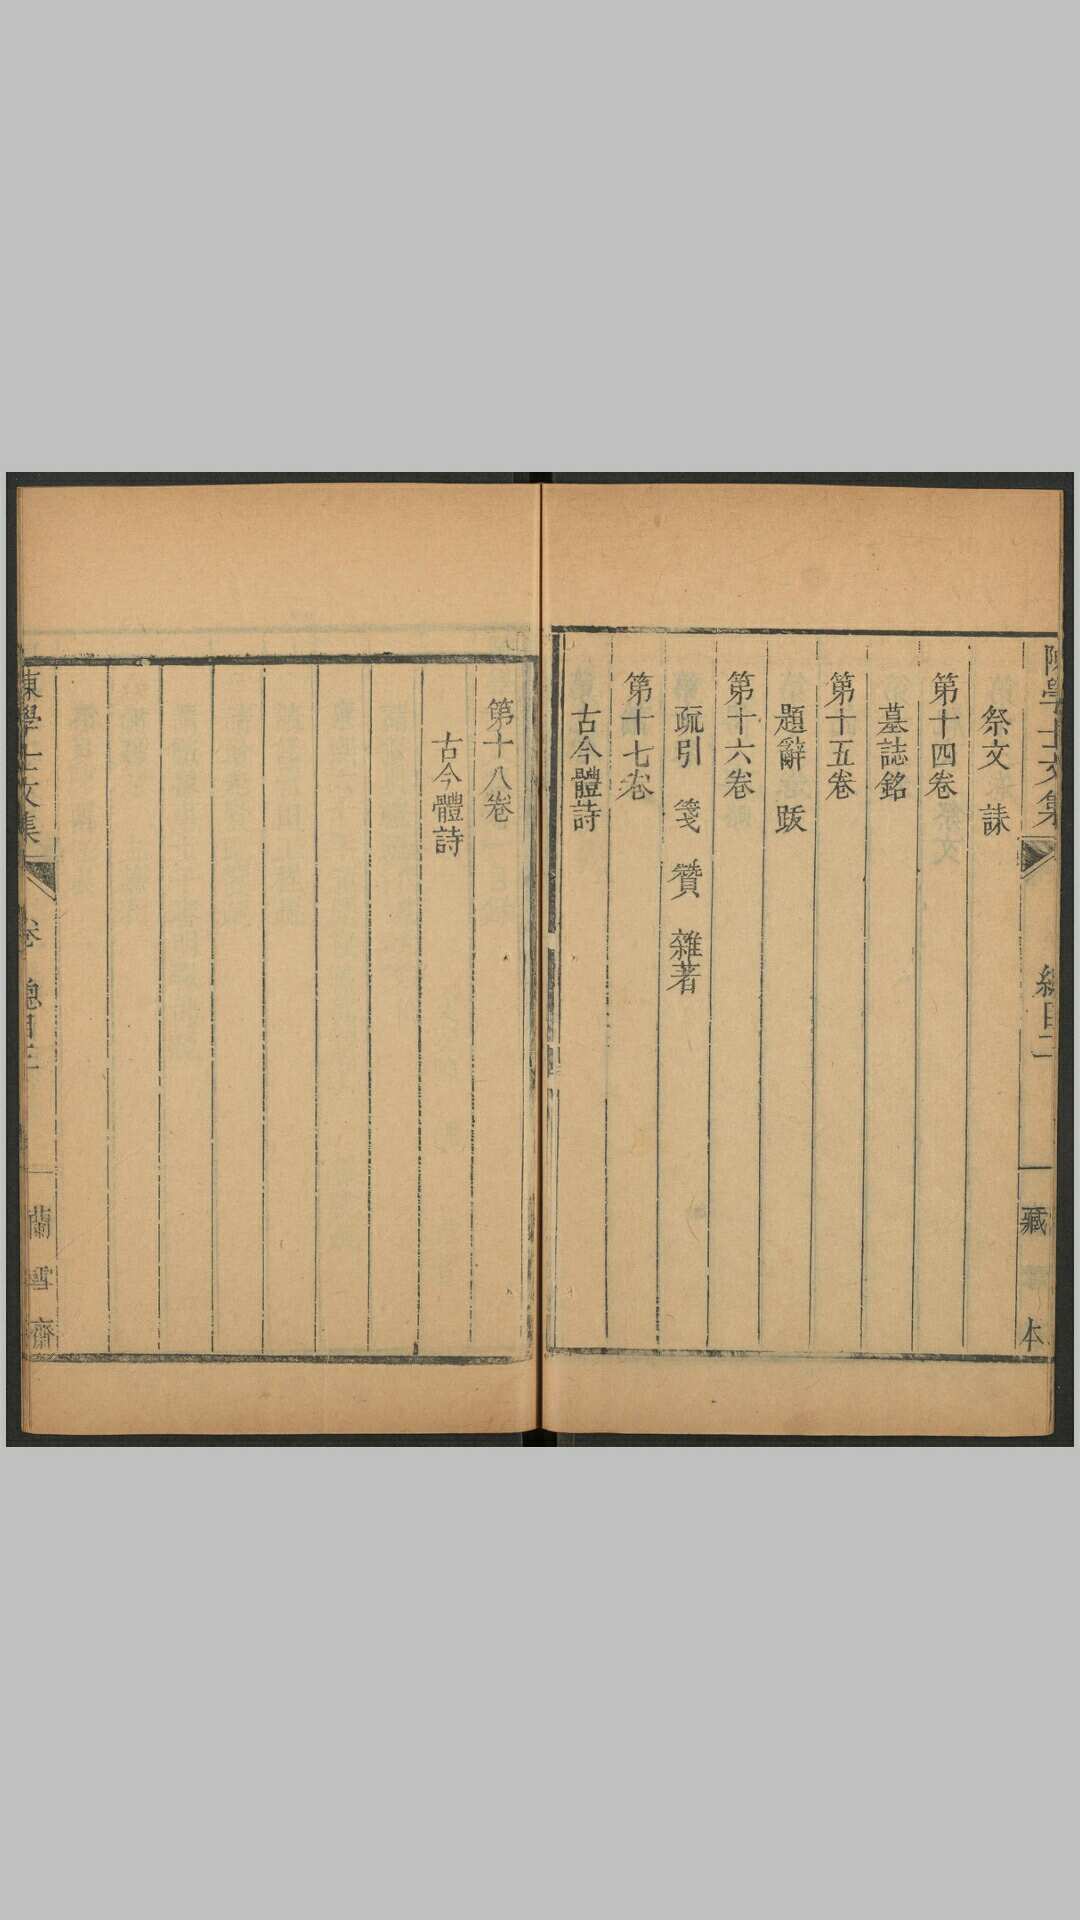 陳學士文集
總目二
藏 本
祭文 誄
第十四卷
墓誌銘
第十五卷
題辭 跋
第十六卷
疏引 箋 贊 雜著
第十七卷
古今體詩
第十八卷
古今體詩
陳學士文集
卷 總目三
蘭雪齋